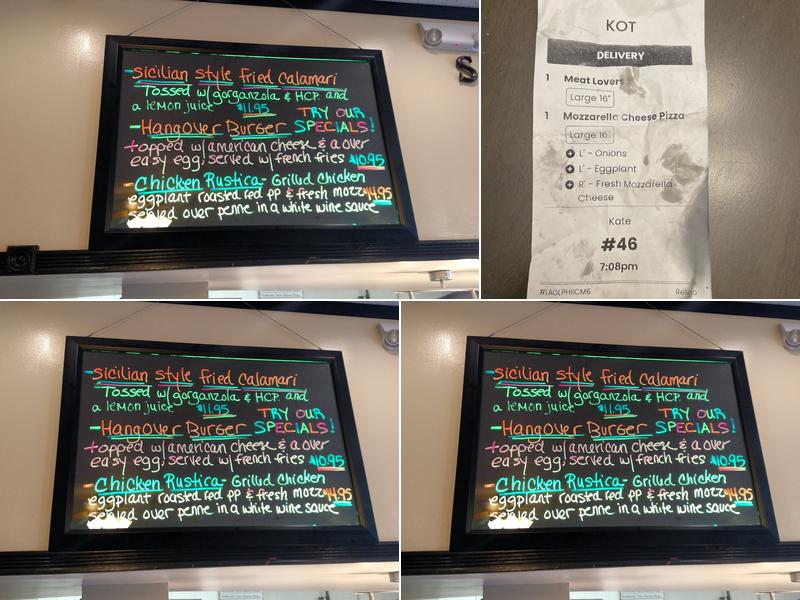 -Sicilian Style fried Calamari
Tossed w/gorganzola & HCP. and
a lemon juice $11.95
TRY OUR
-Hangover Burger SPECIALS!
topped w/american cheese & a over
easy egg, served w/french fries $10.95
-Chicken Rustica- Grilled Chicken
eggplant roasted red pp & fresh mozz $14.95
served over penne in a white wine sauce
S
KOT
DELIVERY
1 Meat Lovers
Large 16"
1 Mozzarella Cheese Pizza
Large 16
L' - Onions
L' - Eggplant
R' - Fresh Mozzarella
Cheese
Kate
#46
7:08pm
#LAOLPHIICM6 Religo
-Sicilian Style fried Calamari
Tossed w/gorganzola & HCP. and
a lemon juice $11.95
TRY OUR
-Hangover Burger SPECIALS!
topped w/american cheese & a over
easy egg, served w/french fries $10.95
-Chicken Rustica- Grilled Chicken
eggplant roasted red pp & fresh mozz $14.95
served over penne in a white wine sauce
-Sicilian Style fried Calamari
Tossed w/gorganzola & HCP. and
a lemon juice $11.95
TRY OUR
-Hangover Burger SPECIALS!
topped w/american cheese & a over
easy egg, served w/french fries $10.95
-Chicken Rustica- Grilled Chicken
eggplant roasted red pp & fresh mozz $14.95
served over penne in a white wine sauce